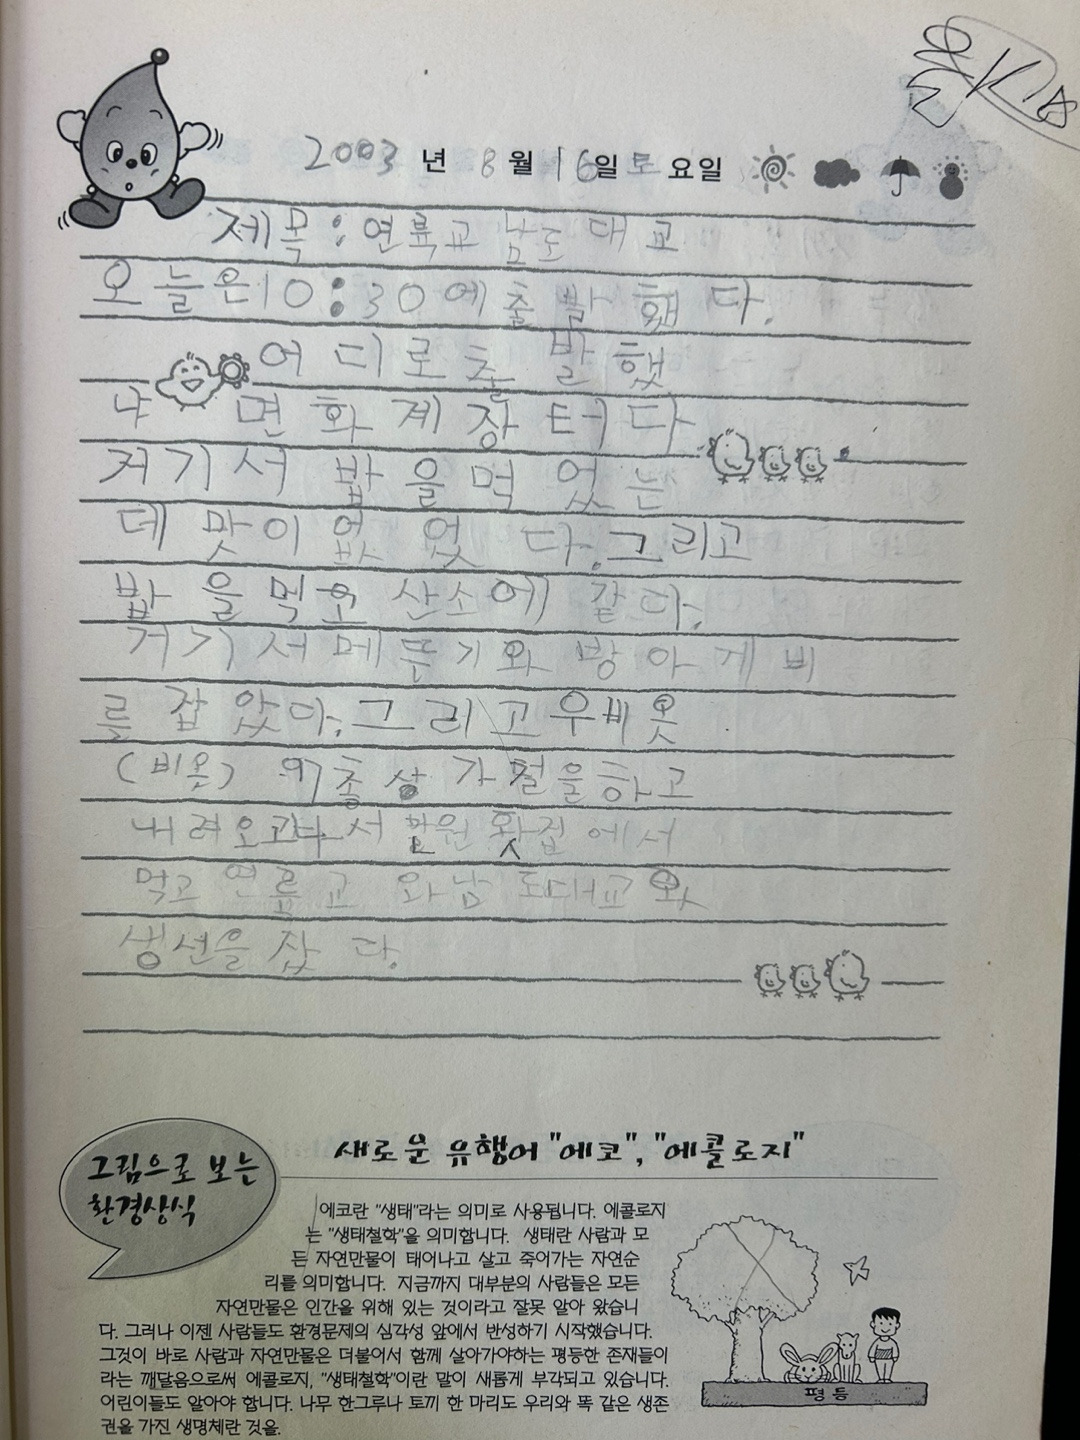 2003 년 8 월 16일 토 요일
제목 : 연륙교 남도대교
오늘은 10:30에 출발 했다.
어디로 출발했
냐면 화계장터다
거기서 밥을 먹었는
데 맛이 없었다. 그리고
밥을 먹고 산소에 갔다.
거기서 메뚜기와 방아게비
를 잡았다. 그리고 우비옷
(비옷) 가절을하고
내려오 서 횟집에서
먹고 연륙교 와 남도대교 와
생선을 잤다.
그림으로 보는
환경상식
새로운 유행어 "에코", "에콜로지"
에코란 "생태"라는 의미로 사용됩니다. 에콜로지
는 "생태철학"을 의미합니다. 생태란 사람과 모
든 자연만물이 태어나고 살고 죽어가는 자연순
리를 의미합니다. 지금까지 대부분의 사람들은 모든
자연만물은 인간을 위해 있는 것이라고 잘못 알아 왔습니
다. 그러나 이젠 사람들도 환경문제의 심각성 앞에서 반성하기 시작했습니다.
그것이 바로 사람과 자연만물은 더불어서 함께 살아가야하는 평등한 존재들이
라는 깨달음으로써 에콜로지, "생태철학"이란 말이 새롭게 부각되고 있습니다.
어린이들도 알아야 합니다. 나무 한그루나 토끼 한 마리도 우리와 똑 같은 생존
권을 가진 생명체란 것을.
평등